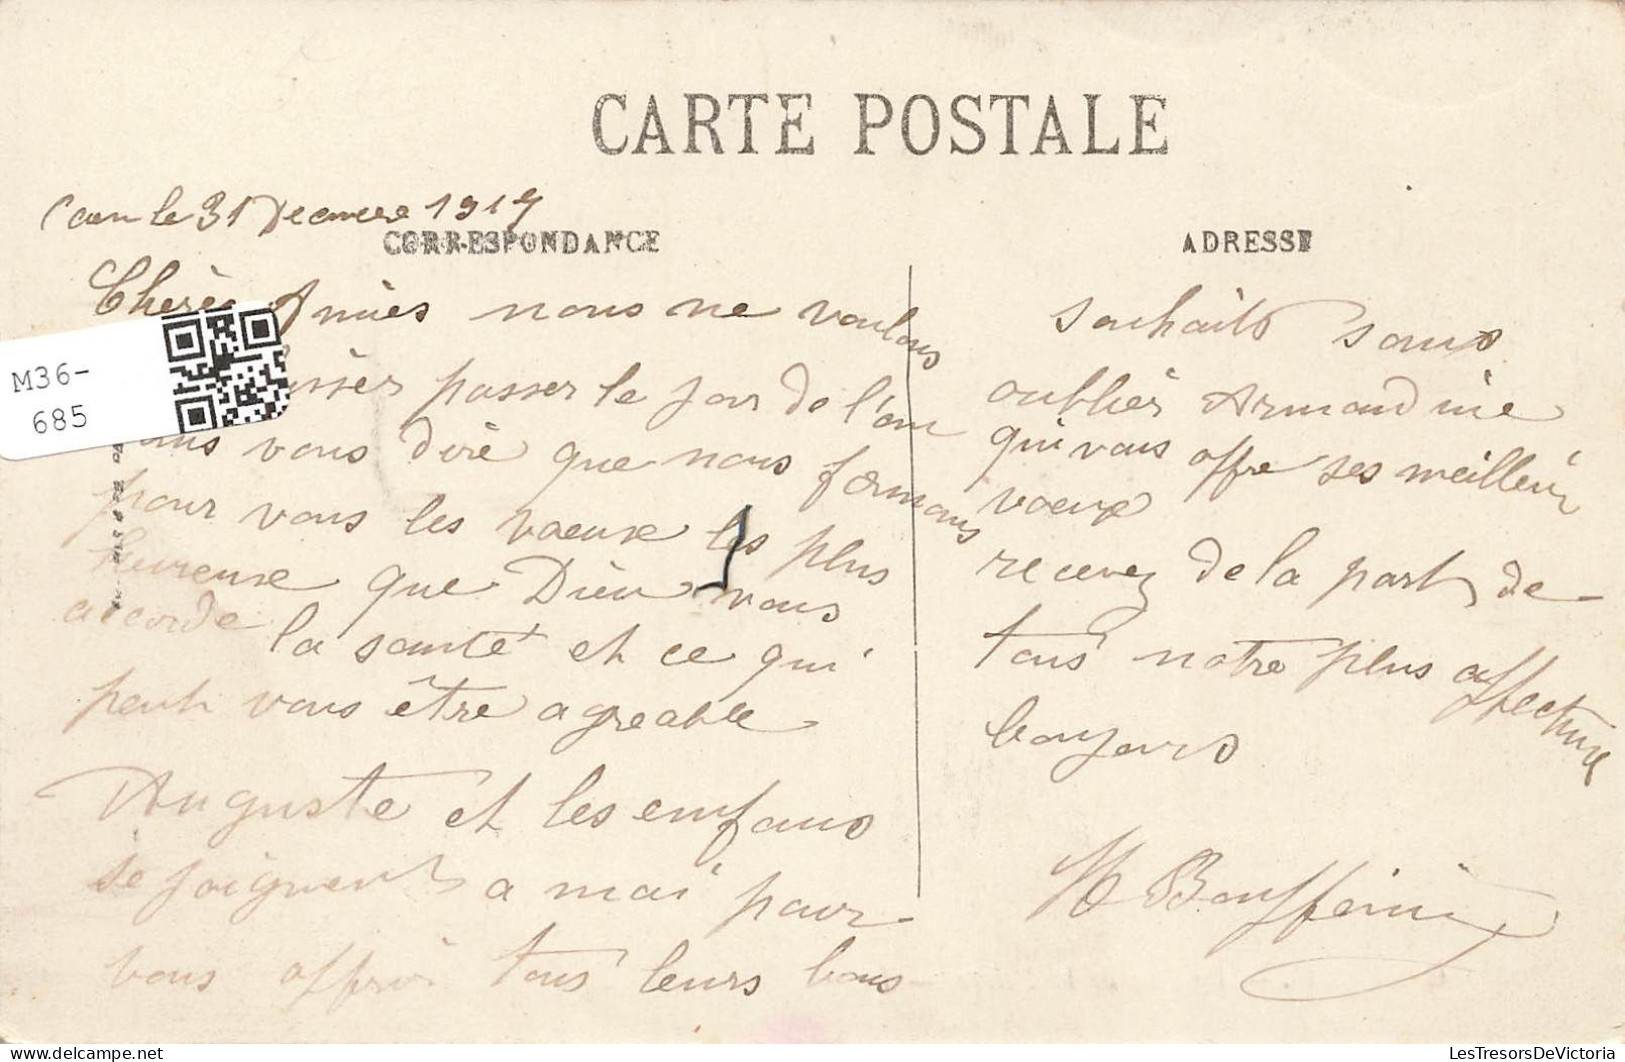 CARTE POSTALE
Caen le 31 Decembre 1917
CORRESPONDANCE
ADRESSE
Chères Amies nous ne voulons
passer le jour de l'an
sans vous dire que nous formons
pour vous les voeux les plus
heureuse que Dieu vous
accorde la santé et ce qui
peut vous être agreable
Auguste et les enfans
se joignent a moi pour
vous offrir tous leurs bons
souhaits sans
oublier Armandine
qui vous offre ses meilleur
voeux
recevez de la part de
tous notre plus affectueux
bonjours
M36-
685
LesTresorsDeVictoria